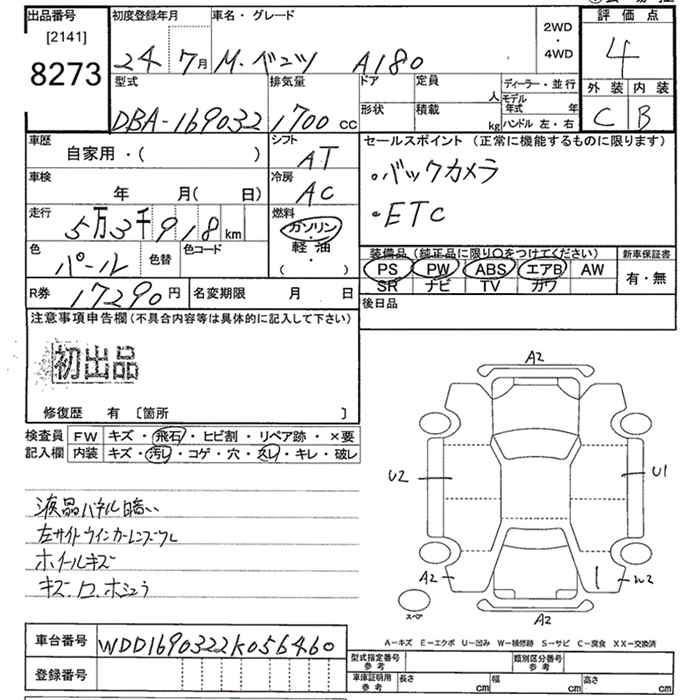 出品番号
[2141]
8273
初度登録年月
24年 7月
車名・グレード
M・ベンツ A180
2WD
・
4WD
評価点
4
外装 内装
C B
型式
DBA-169032
排気量
1700 cc
ドア
形状
定員 人
積載 kg
ディーラー・並行
モデル年式 年
ハンドル 左・右
車歴
自家用・( )
シフト
AT
セールスポイント (正常に機能するものに限ります)
・バックカメラ
・ETC
車検
年 月( 日)
冷房
AC
走行
5万3千918km
燃料
ガソリン
軽・油
( )
色
パール
色替
色コード
装備品 (純正品に限り○をつけてください)
PS PW ABS エアB AW
SR ナビ TV ガワ
新車保証書
有・無
R券 17290円
名変期限 月 日
後日品
注意事項申告欄(不具合内容等は具体的に記入して下さい)
初出品
修復歴 有 [箇所 ]
検査員
記入欄
FW キズ・飛石・ヒビ割・リペア跡・×要
内装 キズ・汚レ・コゲ・穴・スレ・キレ・破レ
液晶パネル暗い
左サイドウインカーレンズワレ
ホイールキズ
キズ・凹・ホシュウ
A2
U2
U1
A2
W2
A2
スペア
A-キズ E-エクボ U-凹み W-補修跡 S-サビ C-腐食 XX-交換済
車台番号 WDD1690322K056460
登録番号
型式指定番号 参考
類別区分番号 参考
車庫証明用 参考
長さ cm
幅 cm
高さ cm